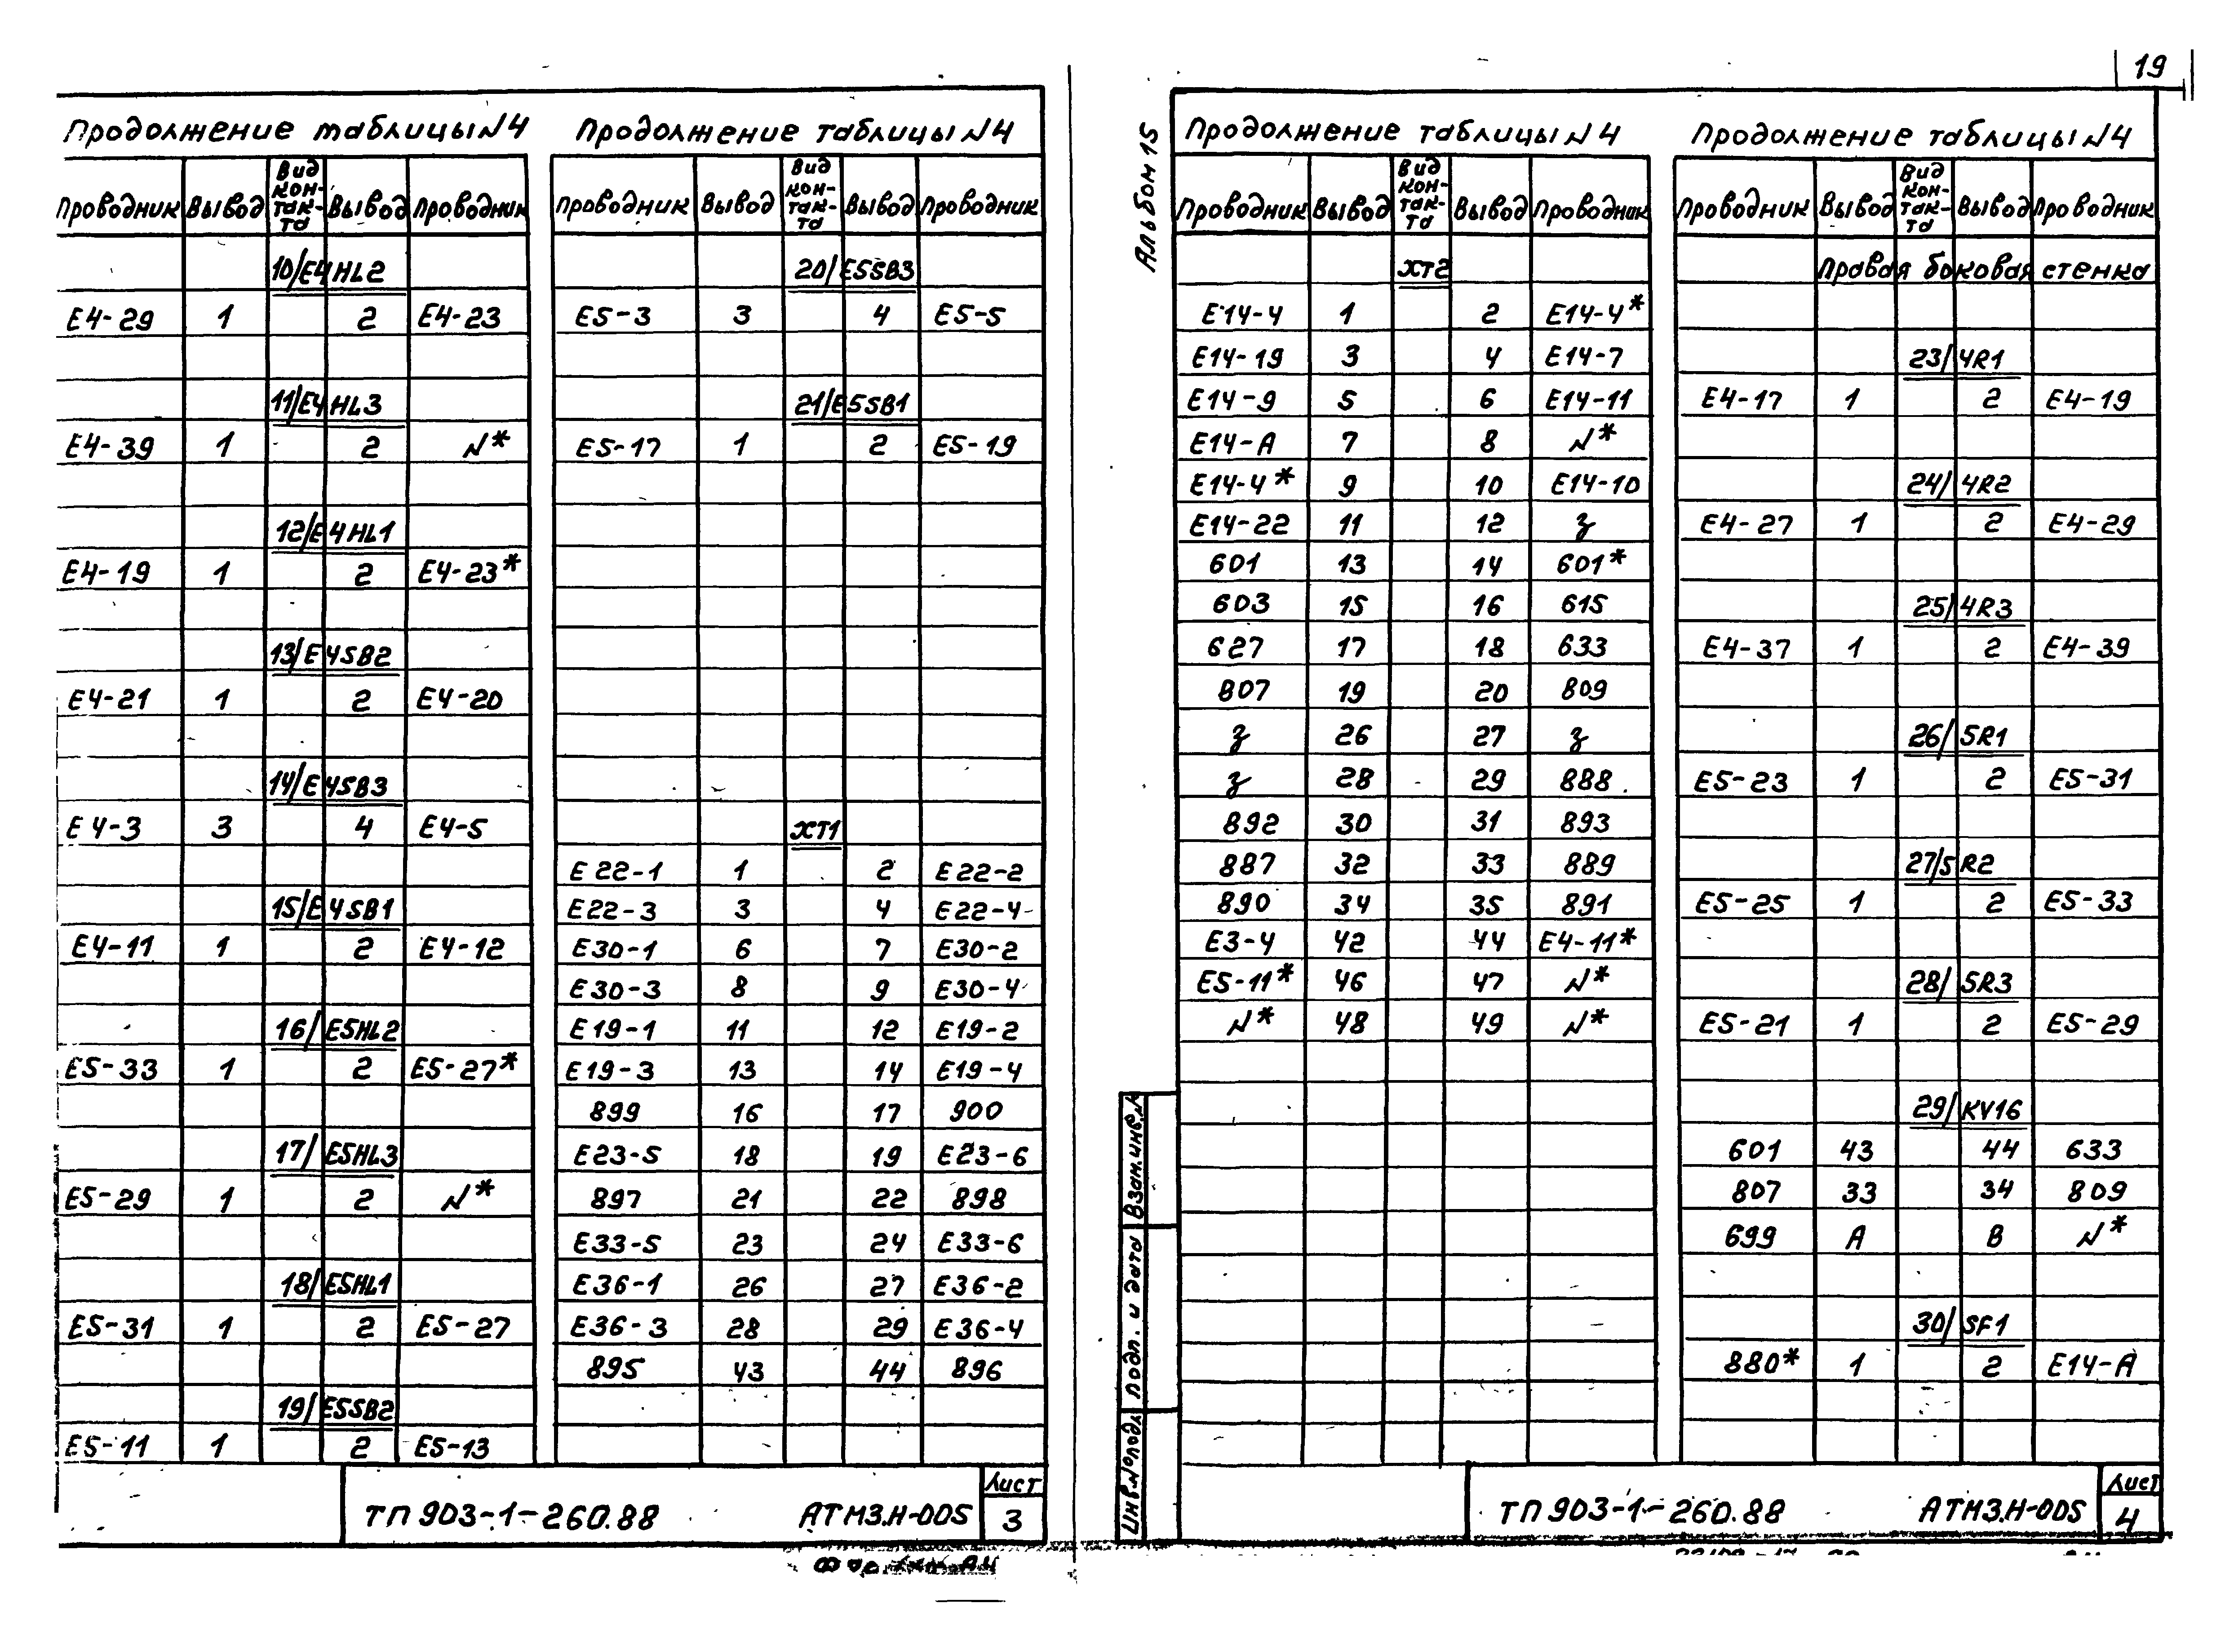 19
Продолжение таблицы N4
Проводник Вывод Вид кон-так-та Вывод Проводник
10/E4HL2
E4-29 1 2 E4-23
11/E4HL3
E4-39 1 2 N*
12/E4HL1
E4-19 1 2 E4-23*
13/E4SB2
E4-21 1 2 E4-20
14/E4SB3
E4-3 3 4 E4-5
15/E4SB1
E4-11 1 2 E4-12
16/E5HL2
E5-33 1 2 E5-27*
17/E5HL3
E5-29 1 2 N*
18/E5HL1
E5-31 1 2 E5-27
19/E5SB2
E5-11 1 2 E5-13
Продолжение таблицы N4
Проводник Вывод Вид кон-так-та Вывод Проводник
20/E5SB3
E5-3 3 4 E5-5
21/E5SB1
E5-17 1 2 E5-19
XT1
E22-1 1 2 E22-2
E22-3 3 4 E22-4
E30-1 6 7 E30-2
E30-3 8 9 E30-4
E19-1 11 12 E19-2
E19-3 13 14 E19-4
899 16 17 900
E23-5 18 19 E23-6
897 21 22 898
E33-5 23 24 E33-6
E36-1 26 27 E36-2
E36-3 28 29 E36-4
895 43 44 896
ТП 903-1-260.88 АТМ3.Н-005 Лист 3
Альбом 15
Продолжение таблицы N4
Проводник Вывод Вид кон-так-та Вывод Проводник
XT2
E14-4 1 2 E14-4*
E14-19 3 4 E14-7
E14-9 5 6 E14-11
E14-A 7 8 N*
E14-4* 9 10 E14-10
E14-22 11 12 з
601 13 14 601*
603 15 16 615
627 17 18 633
807 19 20 809
з 26 27 з
з 28 29 888
892 30 31 893
887 32 33 889
890 34 35 891
E3-4 42 44 E4-11*
E5-11* 46 47 N*
N* 48 49 N*
Продолжение таблицы N4
Проводник Вывод Вид кон-так-та Вывод Проводник
Правая боковая стенка
23/4R1
E4-17 1 2 E4-19
24/4R2
E4-27 1 2 E4-29
25/4R3
E4-37 1 2 E4-39
26/5R1
E5-23 1 2 E5-31
27/5R2
E5-25 1 2 E5-33
28/5R3
E5-21 1 2 E5-29
29/KV16
601 43 44 633
807 33 34 809
699 A B N*
30/SF1
880* 1 2 E14-A
Взам.инв.N
Подп. и дата
Инв.N подл
ТП 903-1-260.88 АТМ3.Н-005 Лист 4